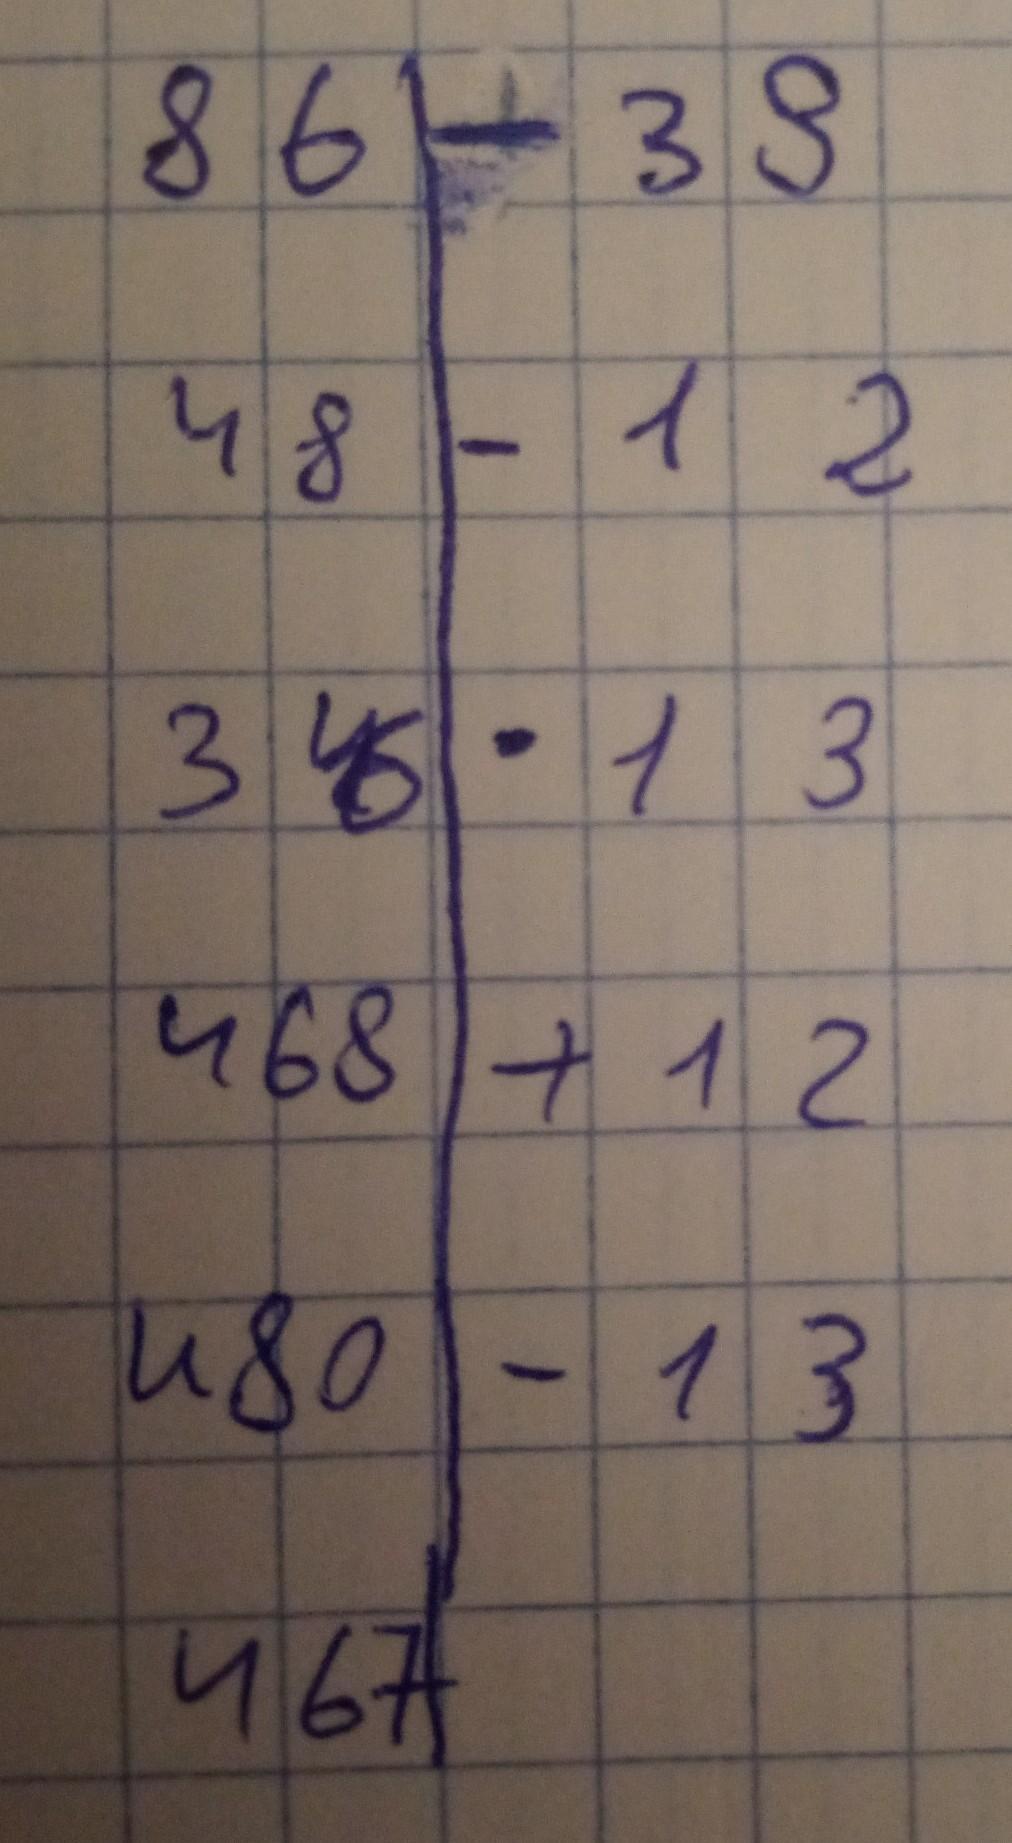 86 - 38
48 - 12
36 · 13
468 + 12
480 - 13
467